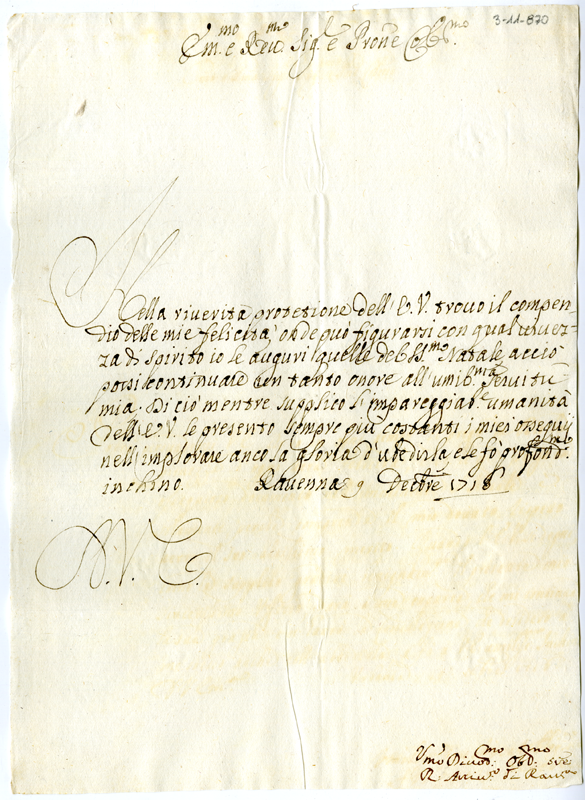 3-11-870
Em.mo e Rev.mo Sig.e Prone Col.mo
Nella riverita protetione dell'E.V. trovo il compen-
dio delle mie felicità, onde può figurarsi con qual
za di spirito io le auguri quelle del S.mo Natale, acciò
possi continuare con tanto onore all'umiliss.ma servitù
mia. Di ciò mentre supplico l'impareggiab.e umanità
dell'E.V. le presento sempre più costanti i miei ossequij
nell'implorare anco la gloria d'ubedirla e le fò profond.mo
inchino. Ravenna 9 Decbre 1718
A.V.E.
Vmo Divod.mo Obd.mo
R di